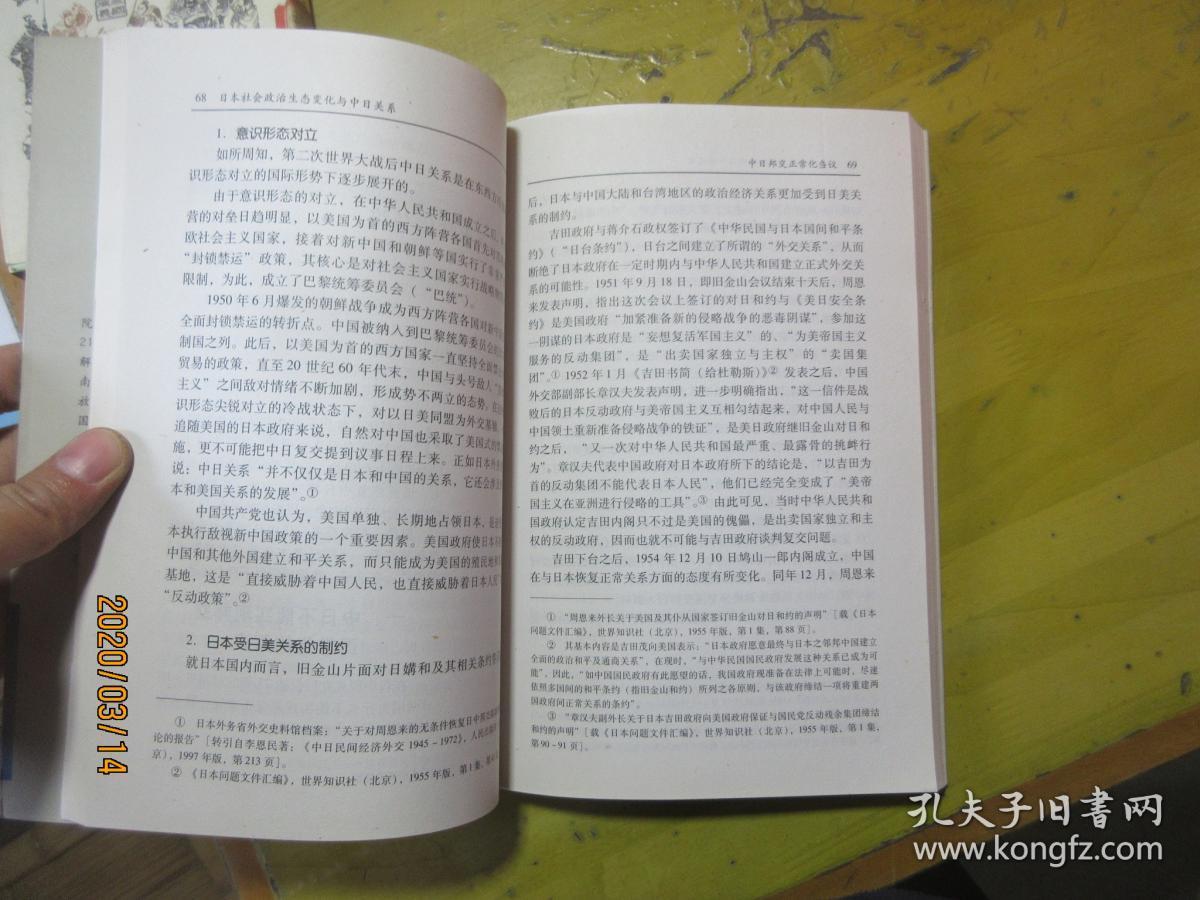 68 日本社会政治生态变化与中日关系
1. 意识形态对立
如所周知，第二次世界大战后中日关系是在东西方
识形态对立的国际形势下逐步展开的。
由于意识形态的对立，在中华人民共和国成立之后，
营的对垒日趋明显，以美国为首的西方阵营各国首先对苏
欧社会主义国家，接着对新中国和朝鲜等国实行了
“封锁禁运”政策，其核心是对社会主义国家实行战略
限制，为此，成立了巴黎统筹委员会（“巴统”）。
1950年6月爆发的朝鲜战争成为西方阵营各国对新中
全面封锁禁运的转折点。中国被纳入到巴黎统筹委员会的
制国之列。此后，以美国为首的西方国家一直坚持全面
贸易的政策，直至20世纪60年代末，中国与头号敌人
主义”之间敌对情绪不断加剧，形成势不两立的态势。在
识形态尖锐对立的冷战状态下，对以日美同盟为外交基轴、
追随美国的日本政府来说，自然对中国也采取了美国式的
施，更不可能把中日复交提到议事日程上来。正如日本外
说：中日关系“并不仅仅是日本和中国的关系，它还会涉
本和美国关系的发展”。①
中国共产党也认为，美国单独、长期地占领日本，是
本执行敌视新中国政策的一个重要因素。美国政府使日本
中国和其他外国建立和平关系，而只能成为美国的殖民地和
基地，这是“直接威胁着中国人民，也直接威胁着日本人民
“反动政策”。②
2. 日本受日美关系的制约
就日本国内而言，旧金山片面对日媾和及其相关条约
① 日本外务省外交史料馆档案：“关于对周恩来的无条件恢复日中邦交
论的报告”［转引自李恩民著：《中日民间经济外交1945～1972》，人民出版社
京），1997年版，第213页］。
② 《日本问题文件汇编》，世界知识社（北京），1955年版，第1集，
中日邦交正常化刍议 69
后，日本与中国大陆和台湾地区的政治经济关系更加受到日美关
系的制约。
吉田政府与蒋介石政权签订了《中华民国与日本国间和平条
约》（“日台条约”），日台之间建立了所谓的“外交关系”，从而
断绝了日本政府在一定时期内与中华人民共和国建立正式外交关
系的可能性。1951年9月18日，即旧金山会议结束十天后，周恩
来发表声明，指出这次会议上签订的对日和约与《美日安全条
约》是美国政府“加紧准备新的侵略战争的恶毒阴谋”，参加这
一阴谋的日本政府是“妄想复活军国主义”的、“为美帝国主义
服务的反动集团”，是“出卖国家独立与主权”的“卖国集
团”。①1952年1月《吉田书简（给杜勒斯）》②发表之后，中国
外交部副部长章汉夫发表声明，进一步明确指出，“这一信件是战
败后的日本反动政府与美帝国主义互相勾结起来，对中国人民与
中国领土重新准备侵略战争的铁证”，是美日政府继旧金山对日和
约之后，“又一次对中华人民共和国最严重、最露骨的挑衅行
为”。章汉夫代表中国政府对日本政府所下的结论是，“以吉田为
首的反动集团不能代表日本人民”，他们已经完全变成了“美帝
国主义在亚洲进行侵略的工具”。③由此可见，当时中华人民共和
国政府认定吉田内阁只不过是美国的傀儡，是出卖国家独立和主
权的反动政府，因而也就不可能与吉田政府谈判复交问题。
吉田下台之后，1954年12月10日鸠山一郎内阁成立，中国
在与日本恢复正常关系方面的态度有所变化。同年12月，周恩来
① “周恩来外长关于美国及其仆从国家签订旧金山对日和约的声明”［载《日本
问题文件汇编》，世界知识社（北京），1955年版，第1集，第88页］。
② 其基本内容是吉田茂向美国表示：“日本政府愿意最终与日本之邻邦中国建立
全面的政治和平及通商关系”，在现时，“与中华民国国民政府发展这种关系已成为可
能”，因此，“如中国国民政府有此愿望的话，我国政府现准备在法律上可能时，尽速
依照多国间的和平条约（指旧金山和约）所列之各原则，与该政府缔结一项将重建两
国政府间正常关系的条约”。
③ “章汉夫副外长关于日本吉田政府向美国政府保证与国民党反动残余集团缔结
和约的声明”［载《日本问题文件汇编》，世界知识社（北京），1955年版，第1集，
第90～91页］。
院
21
解
南
放
国
2020/03/14
孔夫子旧书网
www.kongfz.com